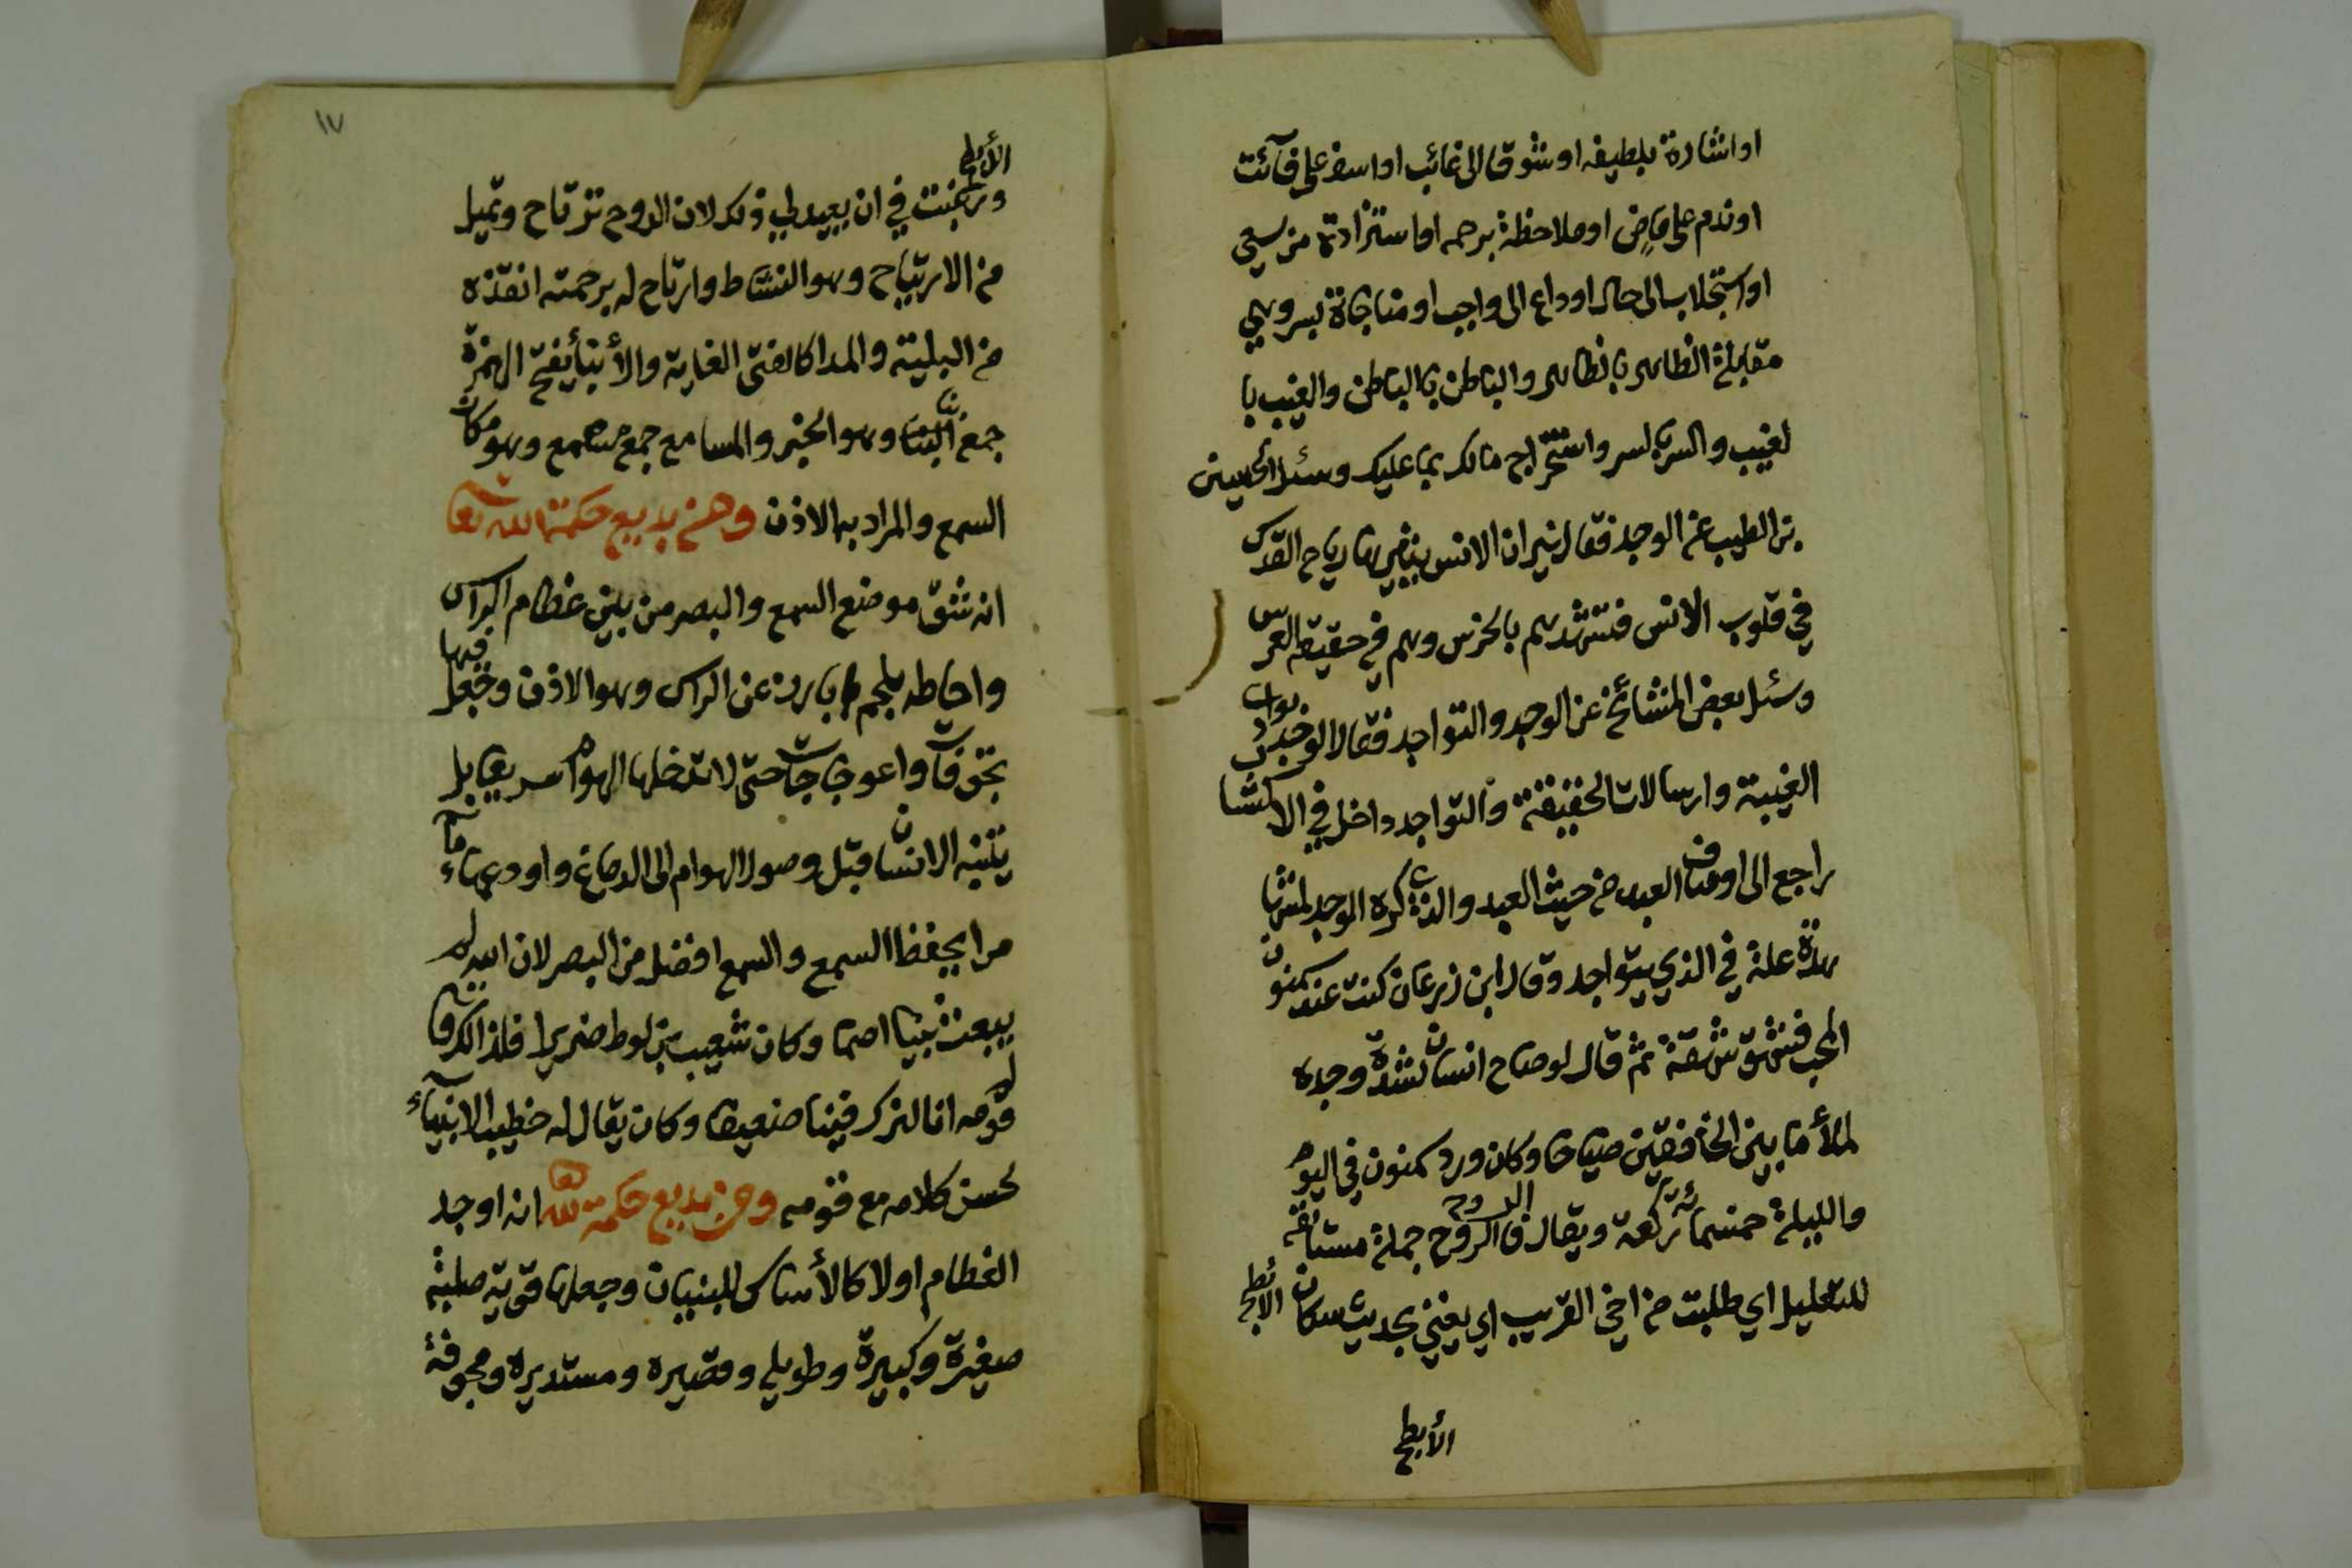 او اشارة بلطيفه او شوقا الى غائب او اسف على فآئت
او ندم على ماض او ملاحظة برحمه او استزادة من سعي
او استجلاب الى حال او داع الى واجب او مناجاة بسر وهي
مقابلة الظاهر بالظاهر والباطن بالباطن والغيب با
لغيب والسر بالسر واستخراج مالك بما عليك وسئل الحسين
بن الطيب عن الوجد فقال نيران الانس رياح القدس
في قلوب الانس بالخرس وهم في حقيقة العرس
وسئل بعض المشائخ عن الوجد والتواجد فقال الوجد بواده
الغيبة وارسالات الحقيقة والتواجد داخل في الاكتساب
راجع الى اوصاف العبد من حيث العبد والذي كره الوجد لمشاهدة
علة في الذي يتواجد وقال ابن زرعان كنت عند سمنون
المحب فشهق شهقة ثم قال لو صاح انسان لشدة وجده
لملأ ما بين الخافقين صياحا وكان ورد سمنون في اليوم
والليلة خمسمائة ركعة ويقال فالروح الروح جملة مستانفة
للتعليل اي طلبت من اخي القريب اي يغنني بحديث سكان الأبطح
الأبطح
١٧
الأبطح
ورغبت في ان يعيد لي ذلك لان الروح ترتاح وتميل
من الارتياح وهو النشاط وارتاح له برحمته انقذه
من البلية والمدا كالفتى الغاية والأنبآ بفتح الهمزة
جمع النبأ وهو الخبر والمسامع جمع مسمع وهو مكان
السمع والمراد به الاذن ومن بديع حكمة الله تعا
انه شق موضع السمع والبصر من بين عظام الراس
واحاطه بلحم بارز عن الراس وهو الاذن وجعل فيها
تجوفات واعوجاجات حتى لا تدخلها الهوام سريعا بل
يتنبه الانسان قبل وصول الهوام الى الدماغ واودعها مآء
مرا يحفظ السمع والسمع افضل من البصر لان الله لم
يبعث نبيا اصما وكان شعيب بن لوط ضريرا فلذالك قال له
قومه انا لنرك فينا ضعيفا وكان يقال له خطيب الانبيآء
لحسن كلامه مع قومه ومن بديع حكمة الله تعا انه اوجد
العظام اولا كالأساس للبنيان وجعلها قوية صلبة
صغيرة وكبيرة وطويلي وقصيره ومستديره ومجوفة